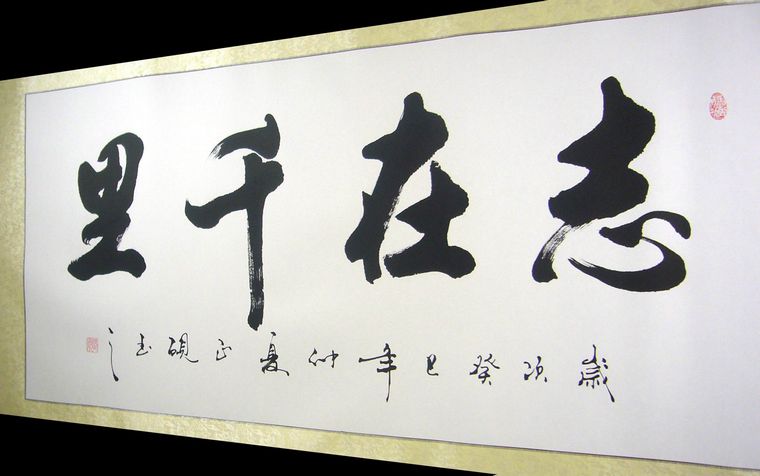 志在千里
歲次癸巳年仲夏正硯書之